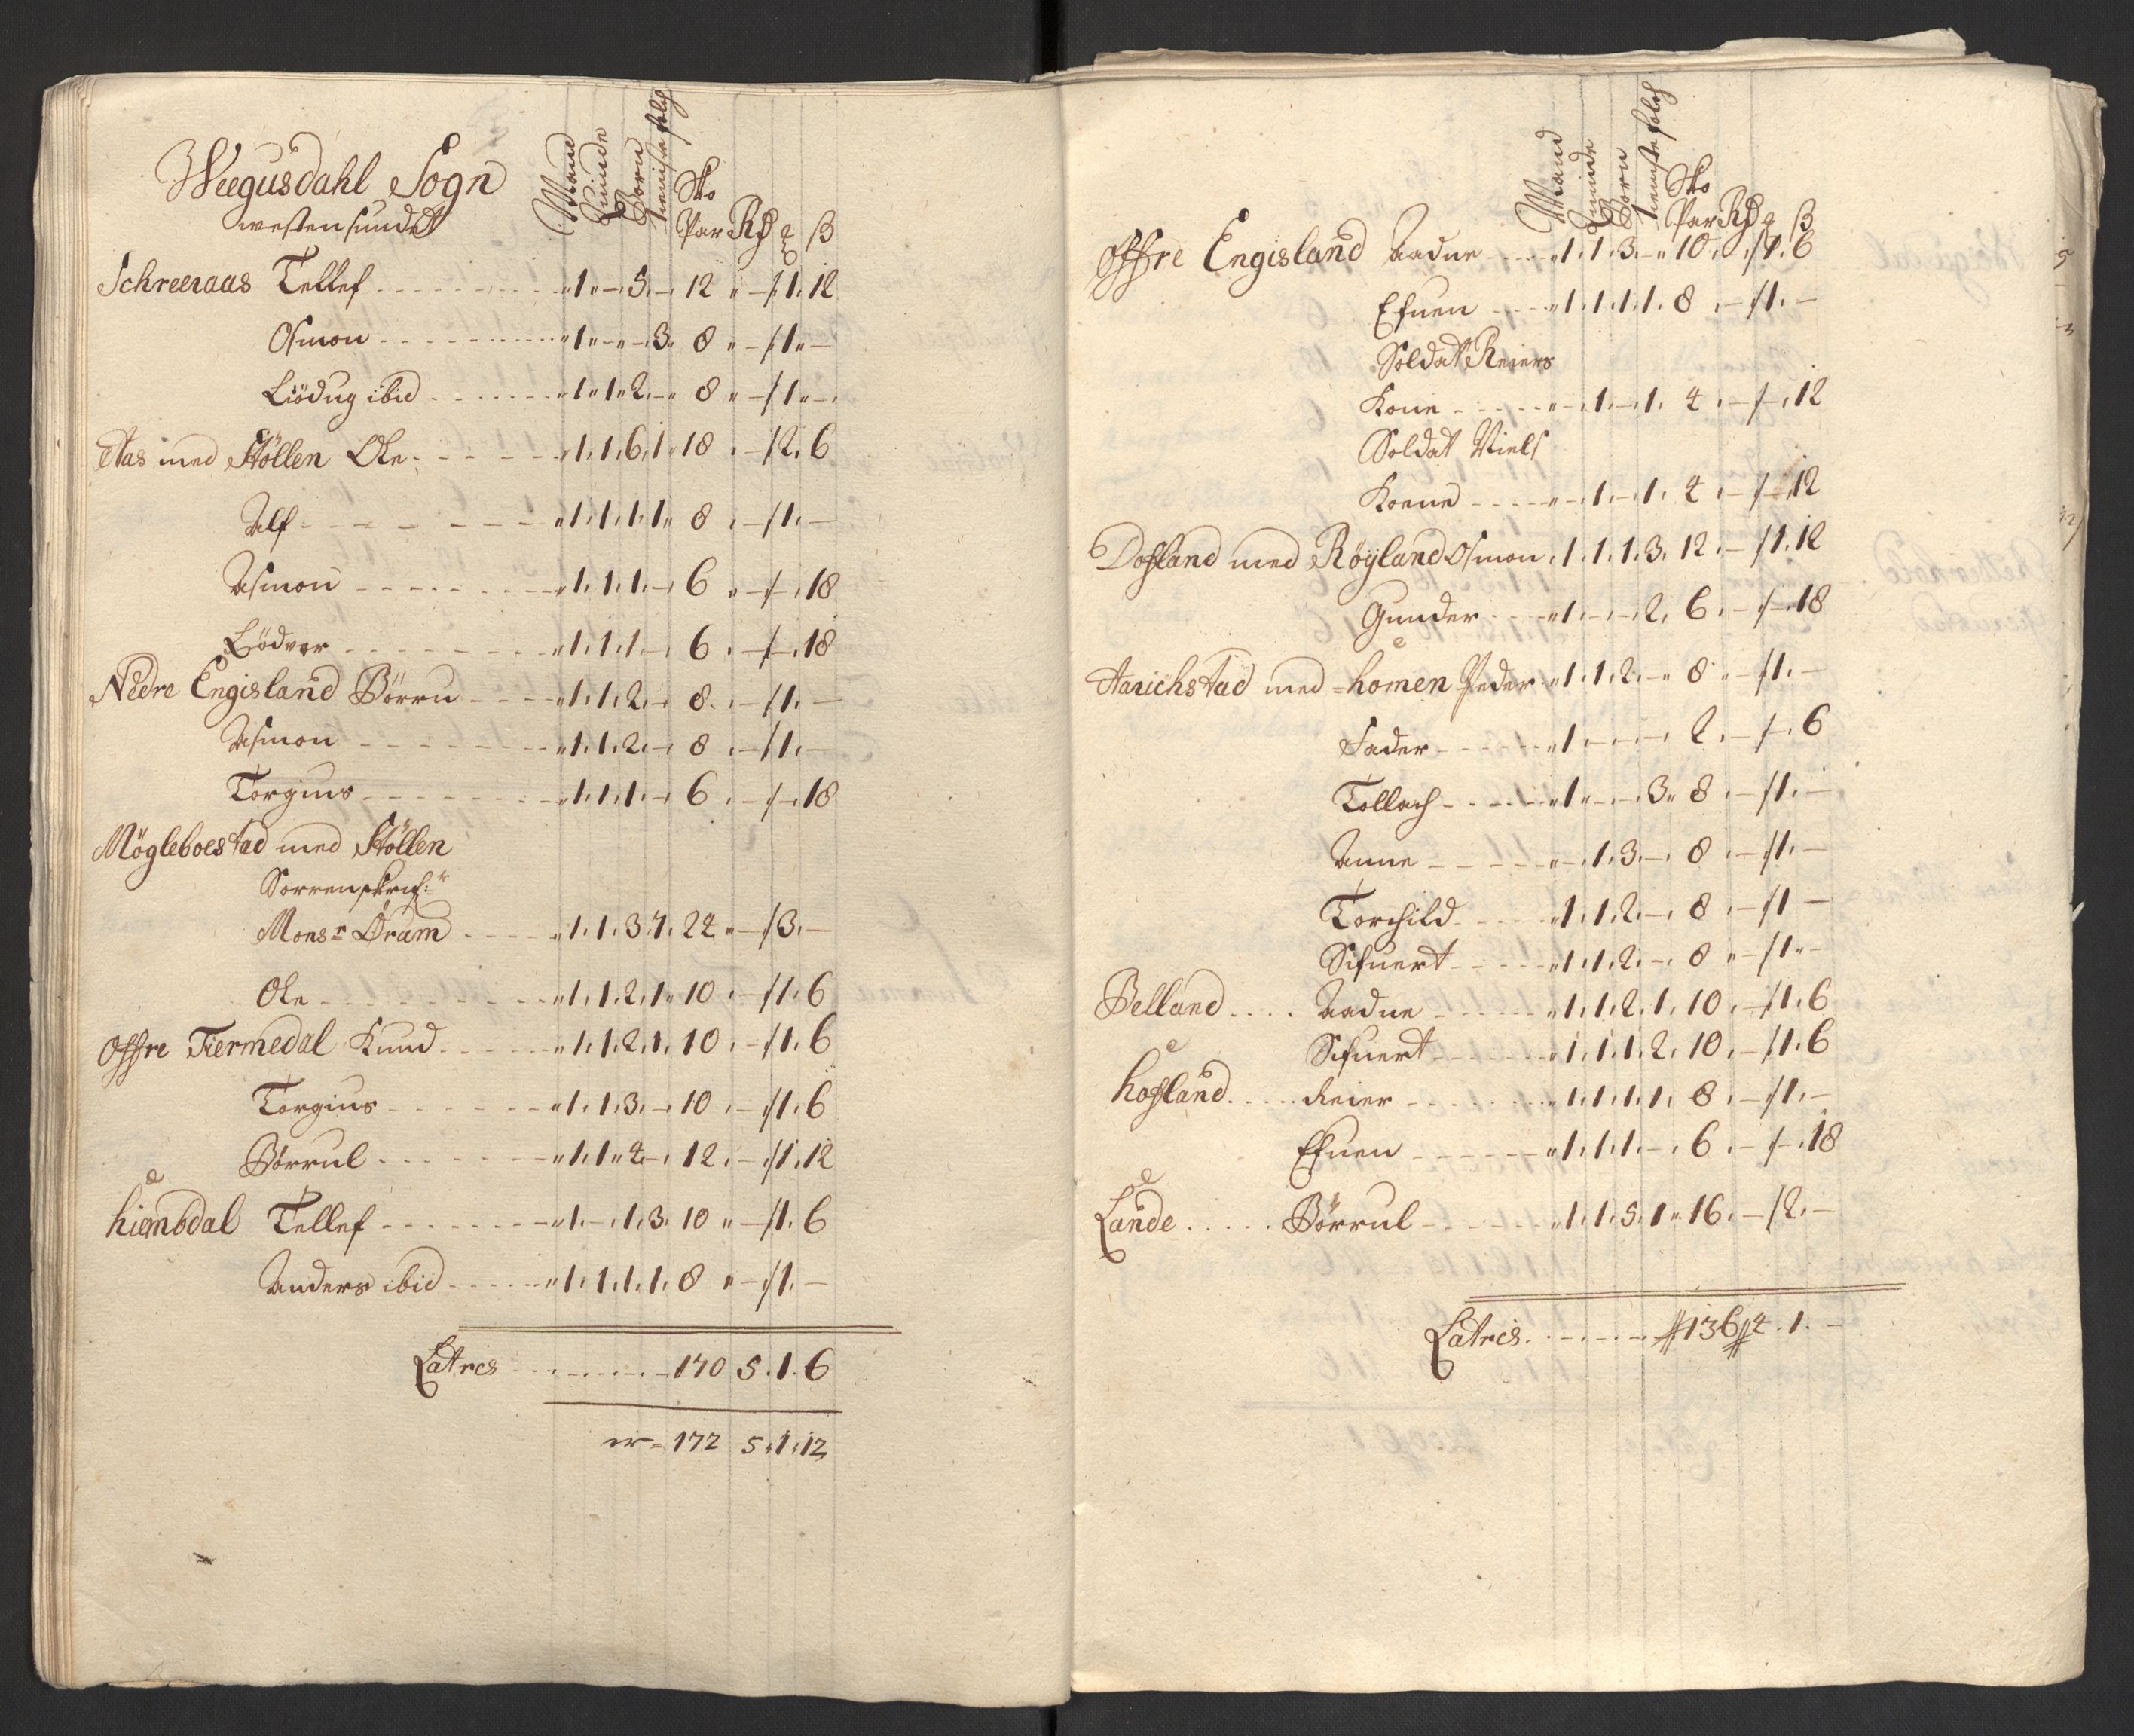 Weegusdahl Sogn
westensundet
Mand Quinde Børn tieniste folch Sko Par Rd q β
Schreeraas Tellef 1 " - 5 - 12 " - / 1. 12
Osmon 1 " - " - 3 " 8 " - / 1 " -
Liödug ibid 1 " 1 " 2 - " 8 " - / 1 " -
Aas med Støllen Ole 1. 1. 6. 1 " 18 . - / 2. 6
Alf 1. 1. 1. 1 " 8 . - / 1. -
Asmon 1. 1. 1. - 6 " - / - . 18
Liödvor 1. 1. 1. - 6 . - / - . 18
Nedre Engisland Börru 1. 1. 2. - 8. . - / 1. -
Asmon 1. 1. 2. - 8 . - / 1. -
Torgius 1. 1. 1. - 6 . - / - . 18
Mögleboestad med Støllen
Sorrenskrif:r
Monsr Dram 1. 1. 3. 7. 24 " - / 3. -
Ole 1. 1. 2. 1 " 10 . - / 1. 6
Offre Tiermedal Knud 1. 1. 2. 1. 10 . - / 1. 6
Torgius 1. 1. 3. - 10 . - / 1. 6
Börrul 1. 1 " 4 - . 12 . - / 1. 12
hiembdal Tellef 1. - . 1. 3. 10 " - / 1. 6
Anders ibid 1. 1. 1. 1. 8 " - / 1. -
Latres 170 5. 1. 6
er = 172 5. 1. 12
Mand Quinde Børn tieniste folch Sko Par Rd q β
Offre Engisland Aadne 1. 1. 3. - " 10 . . / 1. 6
Efuen 1. 1. 1. 1. 8 . - / 1. -
Soldat Reiers
Kone - . 1. - . 1. 4 . - / - . 12
Soldat Niels
Koene - . 1. - . 1. 4 . - / - . 12
Dosland med Røyland Osmon 1. 1. 1. 3. 12 . - / 1. 12
Gunder 1. - . - . 2. 6 . - / - . 18
Aarichstad med homen Peder 1. 1. 2. - " 8 " - / 1. -
Fader 1. - . - . - . 2 . - / - . 6
Tollach 1 " - . - . 3 " 8 . - / 1. -
Anne - . 1. 3. - . 8 . - / 1. -
Torchild 1. 1. 2. - . 8 . - / 1 -
Sifuert 1. 1. 2. - . 8 " - / 1 " -
Belland Aadne 1. 1. 2. 1. 10 . - / 1. 6
Sifuert 1. 1. 1. 2. 10 . - / 1. 6
hosland Reier 1. 1. 1. 1. 8 . - / 1. -
Efuen 1. 1. 1. - . 6 . - / - . 18
Lande Börrul 1. 1. 5. 1 " 16 . - / 2. -
Latris 136 4. 1. -